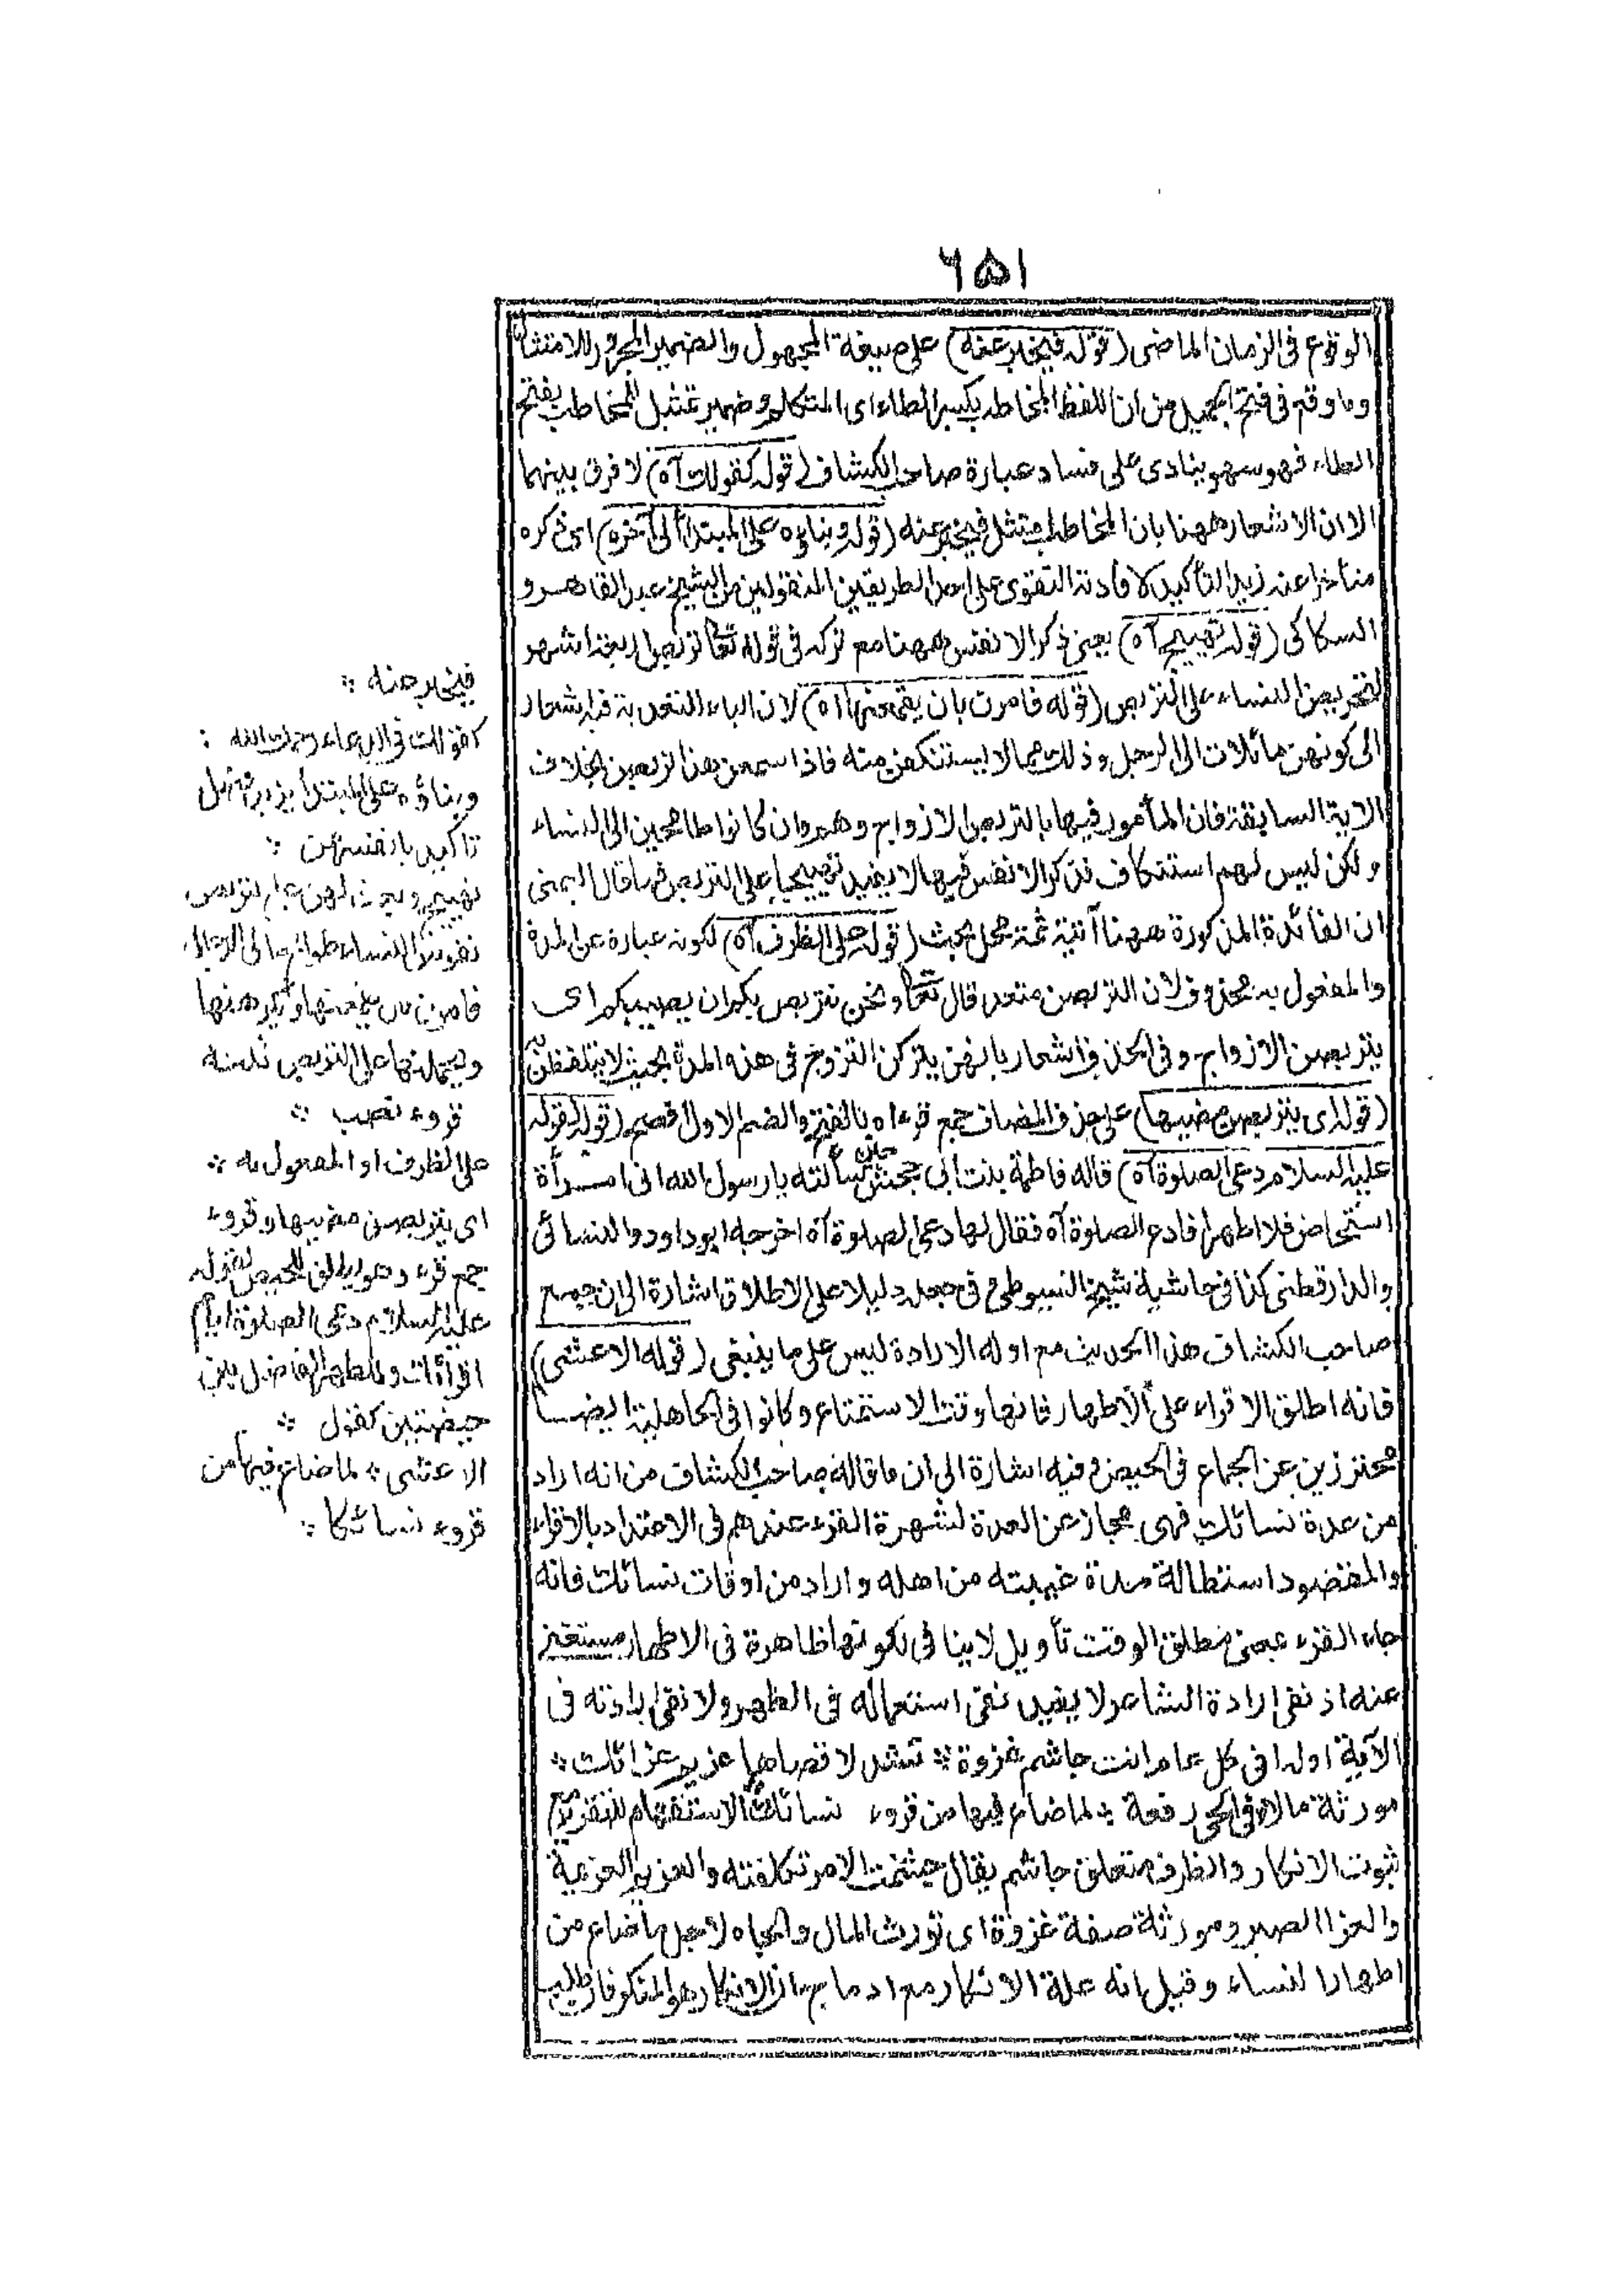 ٦٥١
الوقوع فى الزمان الماضى (قوله فيخبر عنه) على صيغة المجهول والضمير المجرور للامتثال
وما وقع فى فتح الجميل من ان اللفظ المخاطب بكسر الطاء اى المتكلم وضمير تمثيل المخاطب بفتح
الطاء فهو سهو ينادى على فساد عبارة صاحب الكشاف (قوله كقولك آه) لا فرق بينهما
الا ان الاشعار ههنا بان المخاطب متمثل فيخبر عنه (قوله وبناؤه على المبتدأ الى آخره) اى ذكره
متأخرا عنه زيد التأكيد لافادته التقوى على احد الطريقين المنقولين من الشيخ عبد القاهر و
السكاكى (قوله تهييج آه) يعنى ذكر الانفس ههنا مع تركه فى قوله تعالى تربص اربعة اشهر
لتحريض النساء على التربص (قوله فامرت بان يقمعنها آه) لان الباء للتعدية فيه اشعار
الى كونهن مائلات الى الرجل وذلك مما لا يستنكفن منه فاذا سمعن هذا تربصن بخلاف
الاية السابقة فان المأمور فيها بالتربص الازواج وهم وان كانوا طامحين الى النساء
ولكن ليس لهم استنكاف فذكر الانفس فيها لا يفيد تهييجا على التربص فما قال اليمنى
ان الفائدة المذكورة ههنا آتية ثمة محل بحث (قوله على الظرف آه) لكونه عبارة عن المدة
والمفعول به محذوف لان التربص متعد قال تعالى ونحن نتربص بكم ان يصيبكم اى
يتربصن الازواج وفى الحذف اشعار بانهن يتركن التزوج فى هذه المدة بحيث لا يتلفظن به
(قوله اى يتربصن مضيها) على حذف المضاف جمع قرء اه بالفتح والضم الاول افصح (قوله لقوله
عليه السلام دعى الصلوة آه) قاله فاطمة بنت ابى حبيش حين سألته يا رسول الله انى امرأة
استحاض فلا اطهر افادع الصلوة آه فقال لها دعى الصلوة آه اخرجه ابو داود والنسائى
والدارقطنى كذا فى حاشية شيخ السيوطى وفى جعله دليلا على الاطلاق اشارة الى ان جمع
صاحب الكشاف هذا الحديث مع اوله الارادة ليس على ما ينبغى (قوله الاعشى)
فانه اطلق الاقراء على الاطهار فانها وقت الاستمتاع وكانوا فى الجاهلية ايضا
محترزين عن الجماع فى الحيض وفيه اشارة الى ان ما قاله صاحب الكشاف من انه اراد
من عدة نسائك فهى مجاز عن العدة لشهرة القرء عندهم فى الاعتداد بالاقراء
والمقصود استطالة مدة غيبته من اهله واراد من اوقات نسائك فانه
جاء القرء بمعنى مطلق الوقت تأويل لا ينافى لكونها ظاهرة فى الاطهار مستغن
عنه اذ نفى ارادة الشاعر لا يفيد نفى استعماله فى الطهر ولا نفى ارادته فى
الآية اوله افى كل عام انت جاشم غزوة ؞ تشد لاقصاها عزيم عزائك ؞
مورثة مالا وفى الحى رفعة ؞ لما ضاع فيها من قروء نسائكا الاستفهام للتقرير مع
ثبوت الانكار والظرف متعلق جاشم يقال جشمت الامر تكلفته والعزيم العزيمة
والعزا الصبر ومورثة صفة غزوة اى تورث المال والجاه لاجل ما ضاع من
اطهار النساء وقيل انه علة الانكار
فيخبر عنه ؞
كقولك فى الدعاء رحمك الله ؞
وبناؤه على المبتدأ يزيد فضل
تأكيد بانفسهن ؞
تهييج وبعث لهن على التربص
نفوس النساء طوامح الى الرجال
فامرن بان يقمعنها
ويحملنها على التربص ثلثة
قروء نصب ؞
على الظرف او المفعول به ؞
اى يتربصن مضيها وقروء
جمع قرء وهو يطلق للحيض لقوله
عليه السلام دعى الصلوة ايام
اقرائك وللطهر الفاصل بين
حيضتين كقول ؞
الاعشى ؞ لما ضاع فيها من
قروء نسائكا ؞